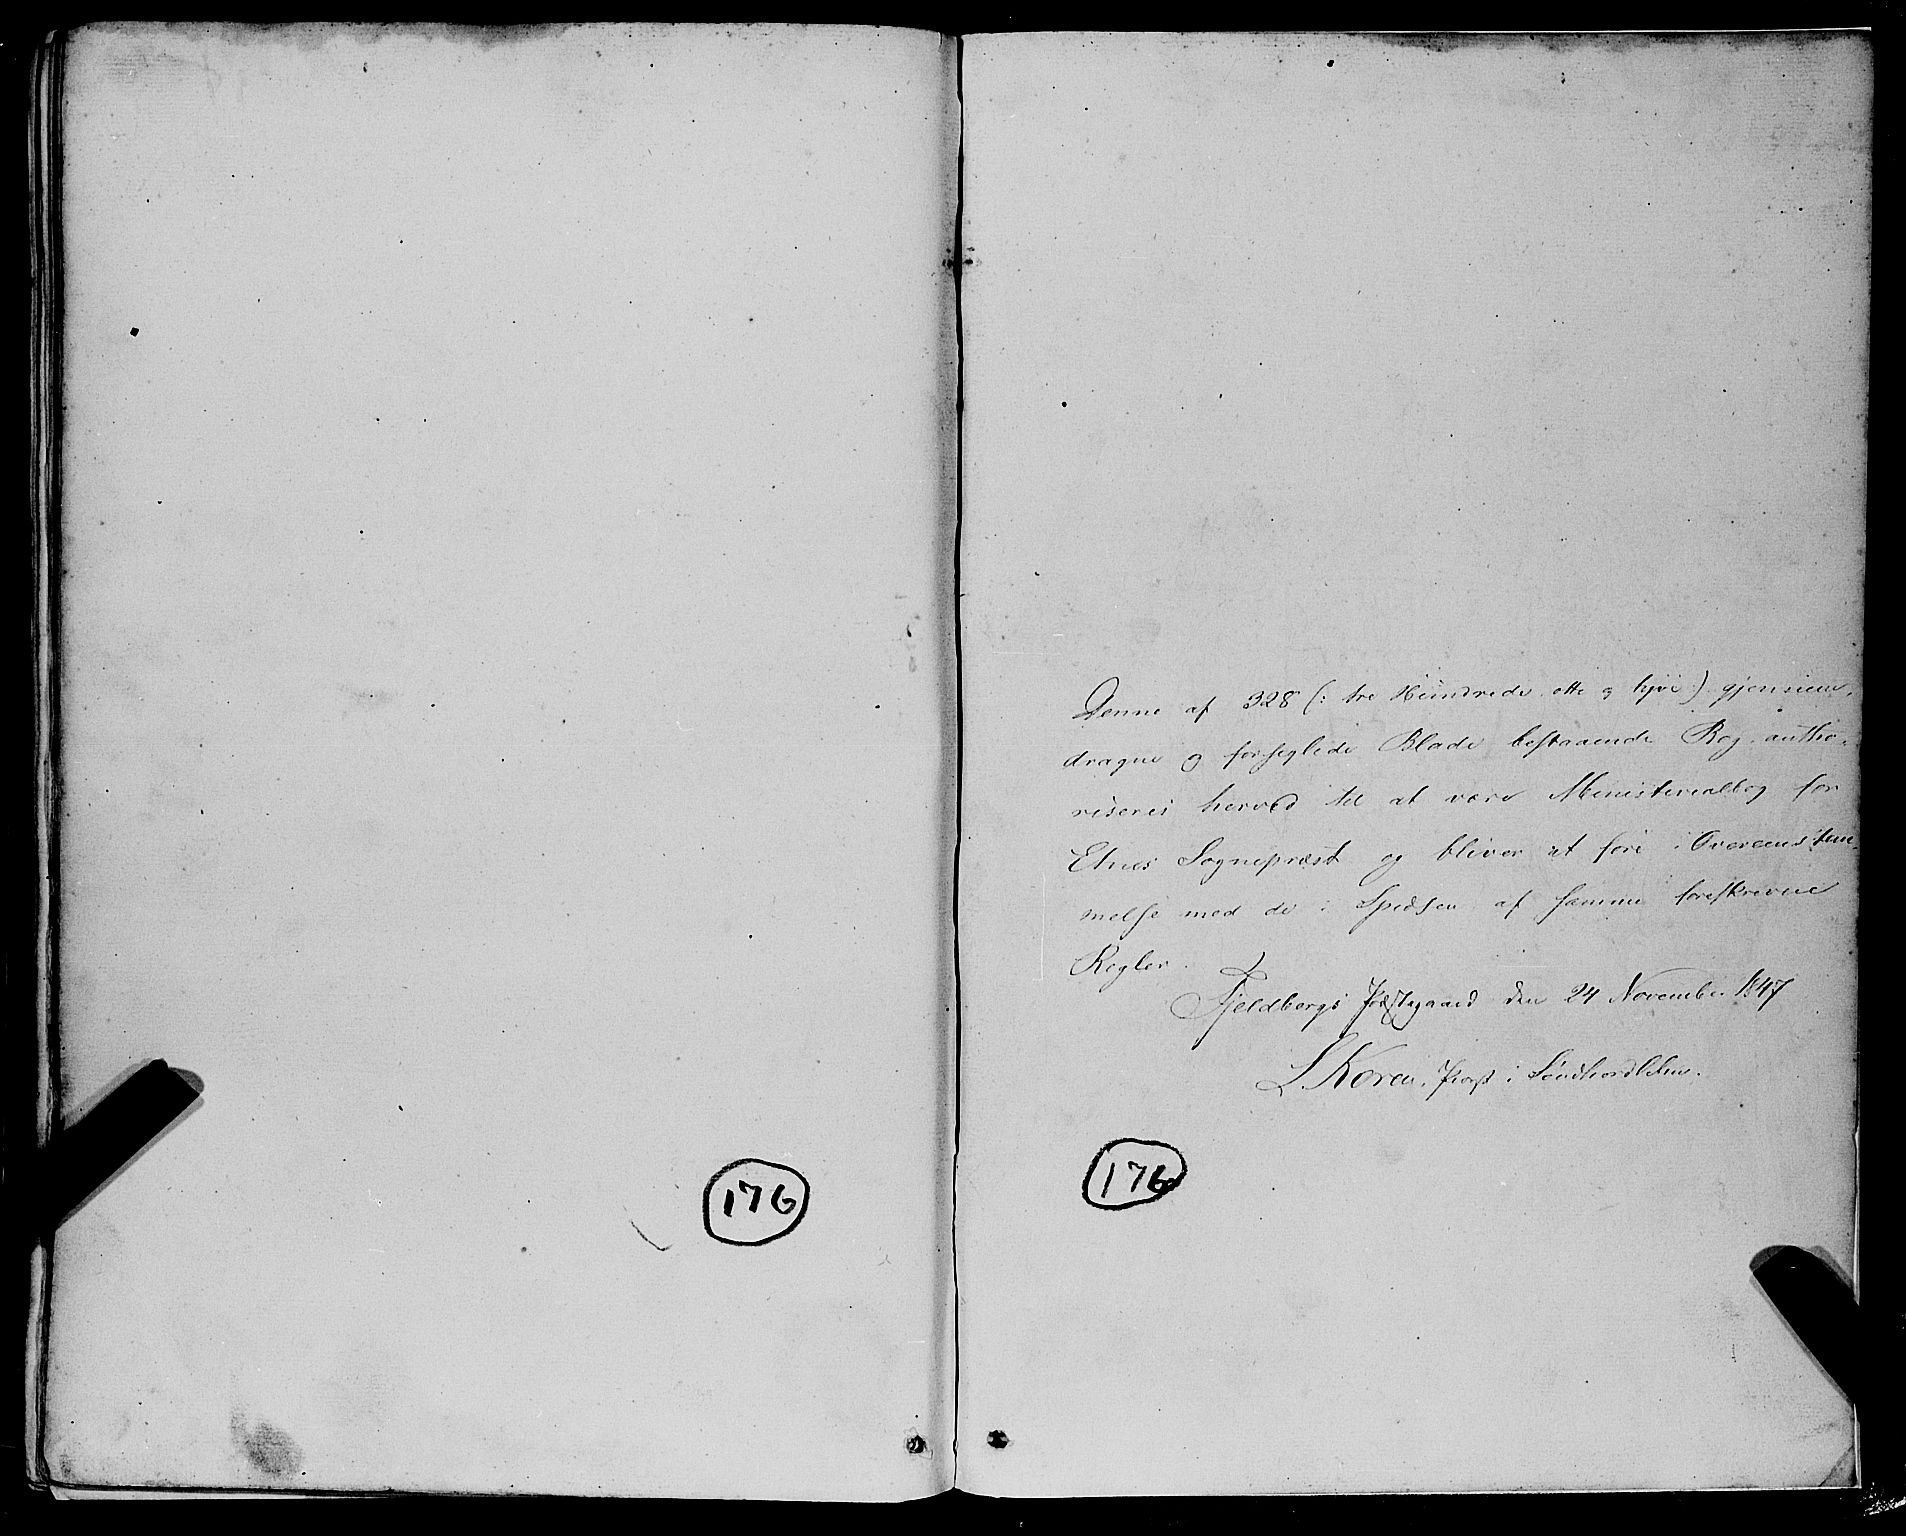 Denne af 328 (: tre Hundrede otte og tyve) gjennem-
dragne og forseglede Blade bestaaende Bog autho-
riseres herved til at være Ministerialbog for
Etnes Sognepræst og bliver at føre i Overeensstem-
melse med de i Spidsen af samme foreskrevne
Regler.
Fjeldbergs Præstegaard den 24 November 1847
L. Koren, Provst i Søndhordlehn.
176
176